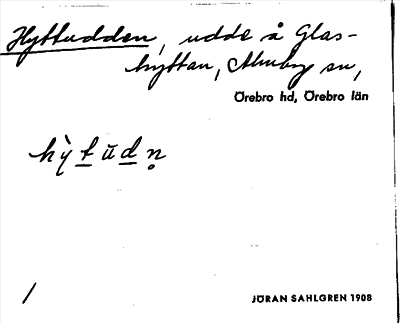 Hyttudden, udde å Glas-
hyttan, Almby sn,
Örebro hd, Örebro län
hy̆̀t̲ŭd̲n̥
/
JÖRAN SAHLGREN 1908